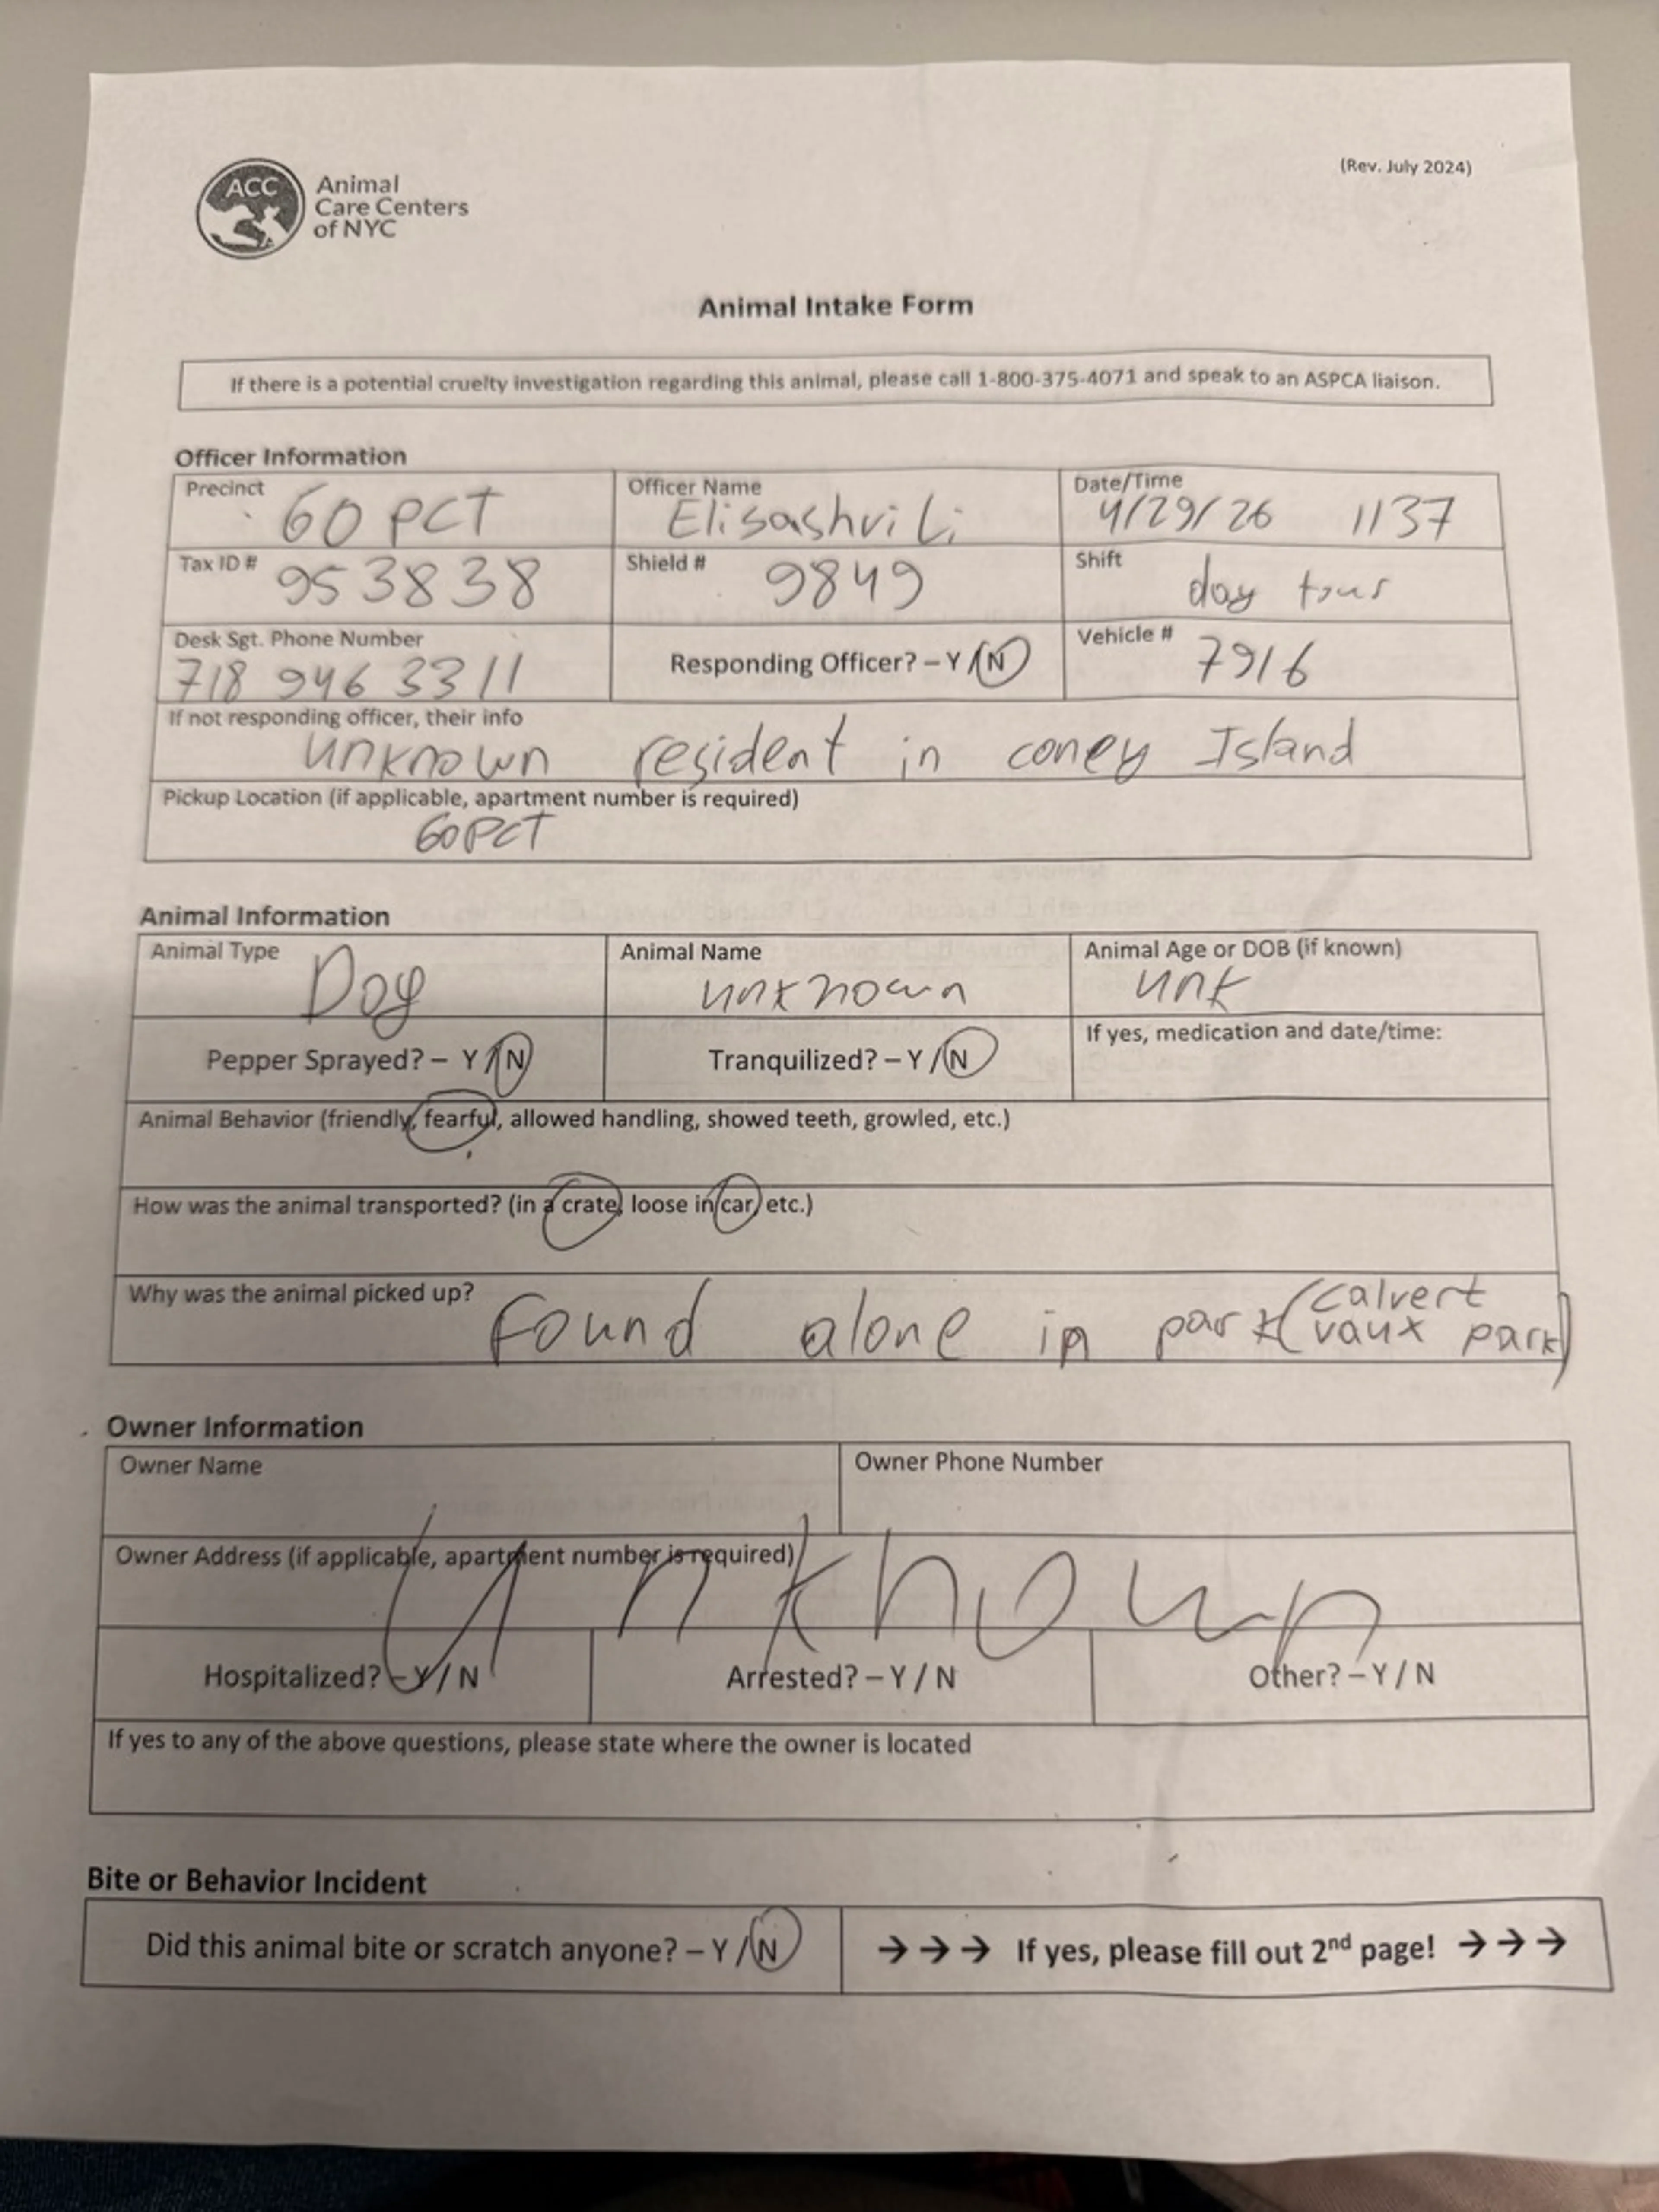 ACC
Animal
Care Centers
of NYC
(Rev. July 2024)
Animal Intake Form
If there is a potential cruelty investigation regarding this animal, please call 1-800-375-4071 and speak to an ASPCA liaison.
Officer Information
Precinct 60 PCT
Officer Name Elisashvili
Date/Time 4/29/26 1137
Tax ID # 953838
Shield # 9849
Shift day tour
Desk Sgt. Phone Number
718 946 3311
Responding Officer? – Y / N
Vehicle # 7916
If not responding officer, their info
unknown resident in coney Island
Pickup Location (if applicable, apartment number is required)
60 PCT
Animal Information
Animal Type Dog
Animal Name
unknown
Animal Age or DOB (if known)
unk
Pepper Sprayed? – Y / N
Tranquilized? – Y / N
If yes, medication and date/time:
Animal Behavior (friendly, fearful, allowed handling, showed teeth, growled, etc.)
How was the animal transported? (in a crate, loose in car, etc.)
Why was the animal picked up? Found alone in park (calvert
vaux park)
Owner Information
Owner Name
Owner Phone Number
Owner Address (if applicable, apartment number is required)
Unknown
Hospitalized? – Y / N
Arrested? – Y / N
Other? – Y / N
If yes to any of the above questions, please state where the owner is located
Bite or Behavior Incident
Did this animal bite or scratch anyone? – Y / N
→→→ If yes, please fill out 2nd page! →→→